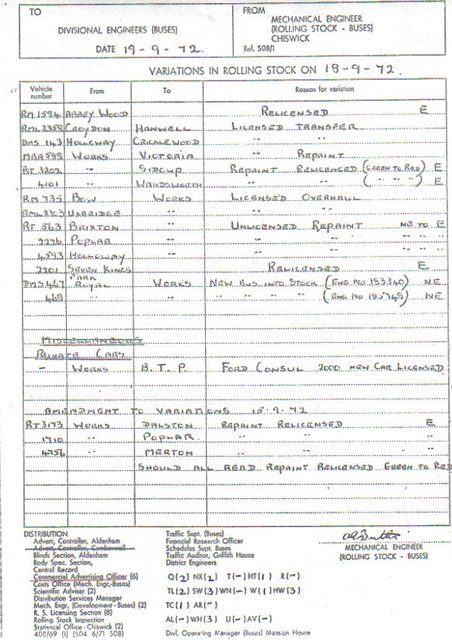 TO
DIVISIONAL ENGINEERS (BUSES)
DATE 19-9-72.
FROM
MECHANICAL ENGINEER
(ROLLING STOCK - BUSES)
CHISWICK
Ref. 508/1
VARIATIONS IN ROLLING STOCK ON 18-9-72.
Vehicle number From To Reason for variation
RM 1594 ABBEY WOOD RELICENSED E
RML 2358 CROYDON HANWELL LICENSED TRANSFER
DMS 143 HOLLOWAY CRICKLEWOOD " "
MAA 598 WORKS VICTORIA " REPAINT
RT 3202 " SIDCUP REPAINT RELICENCED (GREEN TO RED) E
4101 " WANDSWORTH " " ( " " " ) E
RM 735 BOW WORKS LICENSED OVERHAUL
RML UXBRIDGE " " "
RT 563 BRIXTON " UNLICENSED REPAINT NE TO E
2276 POPLAR " " " " " "
4593 HOLLOWAY " " " " " "
2201 SEVEN KINGS RELICENSED E
DMS 467 PARK ROYAL WORKS NEW BUS INTO STOCK (ENG. NO 193340) NE
468 " " " " " " (ENG. NO ) NE
MISCELLANEOUS
PRIVATE CARS
- WORKS B.T.P. FORD CONSUL 2000 NEW CAR LICENSED
AMENDMENT TO VARIATIONS 15-9-72
RT 3173 WORKS DALSTON REPAINT RELICENSED E
1710 " POPLAR "
4756 " MERTON "
SHOULD ALL READ REPAINT RELICENSED GREEN TO RED
DISTRIBUTION
Advert, Controller, Aldenham
Advert, Controller, Camberwell
Blinds Section, Aldenham
Body Spec. Section,
Central Record
Commercial Advertising Officer (6)
Costs Office (Mech. Engr.-Buses)
Scientific Adviser (2)
Distribution Services Manager
Mech. Engr. (Development - Buses) (2)
R. S. Licensing Section (8)
Rolling Stock Inspection
Statistical Office - Chiswick (2)
408/69 (I) (504 6/71 508)
Traffic Supt. (Buses)
Financial Research Officer
Schedules Supt. Buses
Traffic Auditor, Griffith House
District Engineers
Q(2) NX(2) T(-) HT(1) R(-)
TL(2) SW(3) WN(-) W(1) HW(3)
TC(1) AR(-)
AL(-) WH(3) U(-) AV(-)
Divl. Operating Manager (Buses) Mansion House
MECHANICAL ENGINEER
(ROLLING STOCK - BUSES)